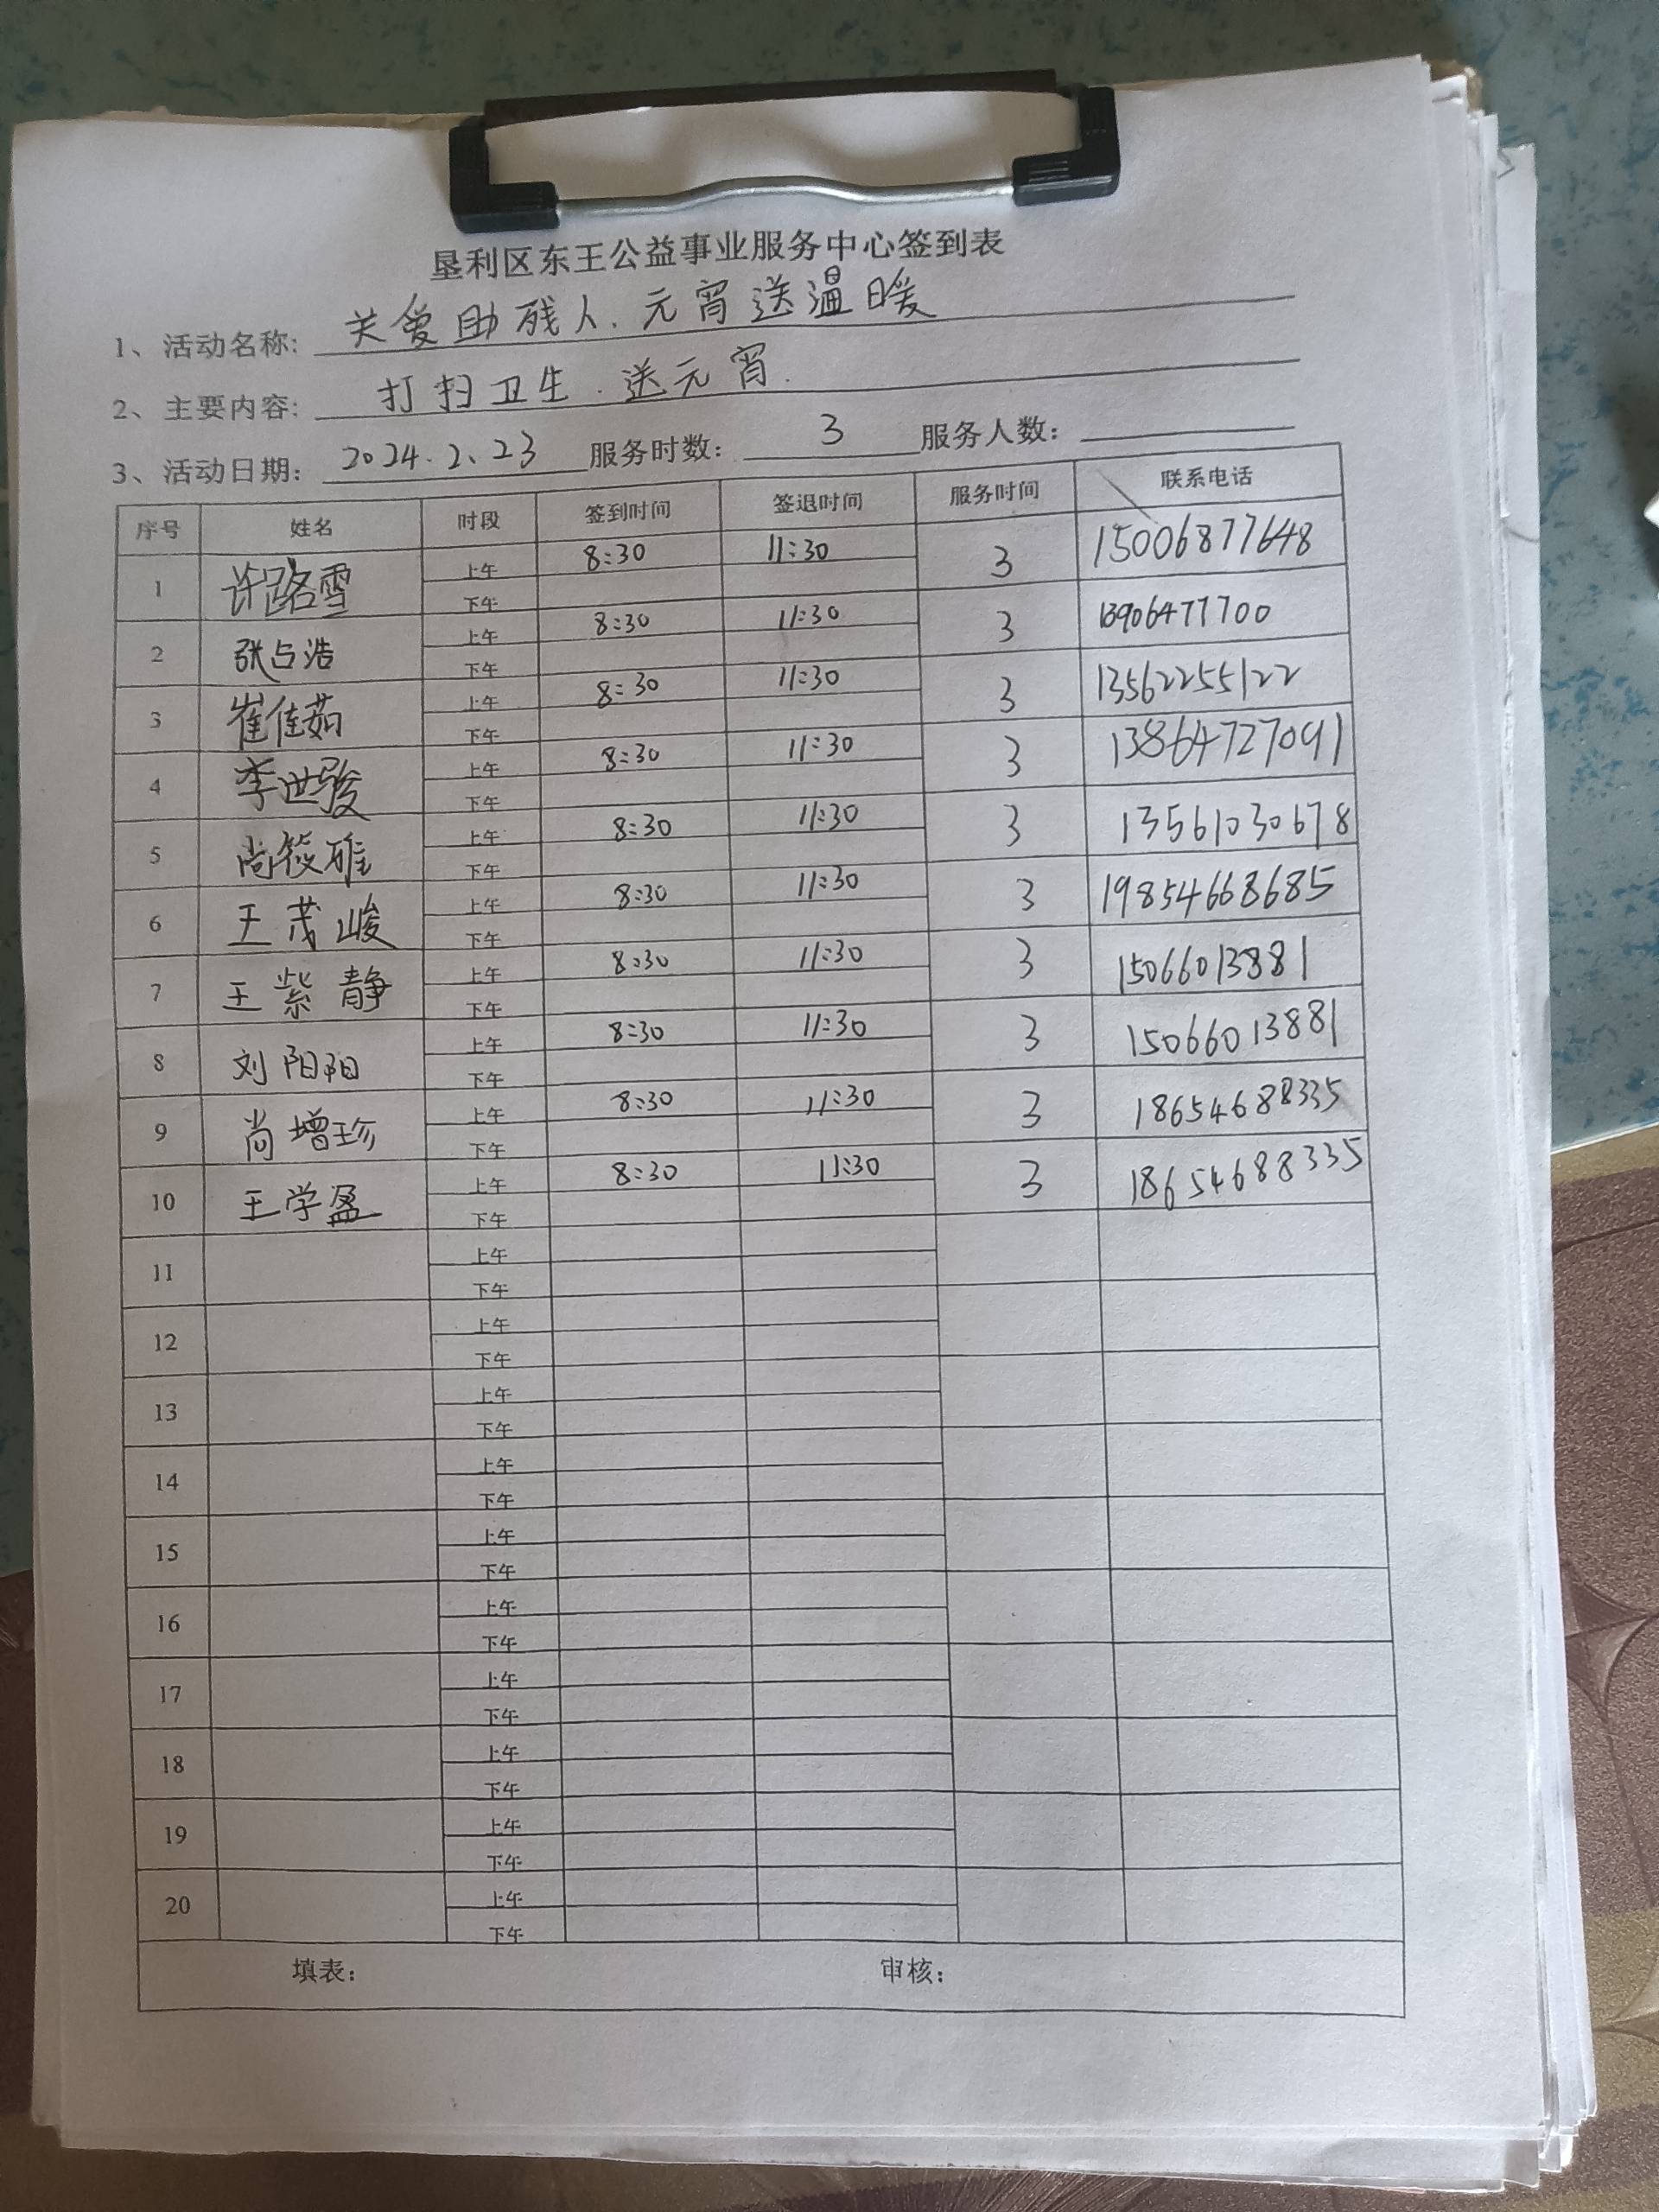 垦利区东王公益事业服务中心签到表
1、活动名称: 关爱助残人.元宵送温暖
2、主要内容: 打扫卫生.送元宵.
3、活动日期: 2024.2.23 服务时数: 3 服务人数:
序号 姓名 时段 签到时间 签退时间 服务时间 联系电话
1 许路雪 上午 8:30 11:30 3 15006877648
下午
2 张占浩 上午 8:30 11:30 3 13906477700
下午
3 崔佳茹 上午 8:30 11:30 3 13562255122
下午
4 李世骏 上午 8:30 11:30 3 13864727091
下午
5 尚筱雅 上午 8:30 11:30 3 13561030678
下午
6 王茂峻 上午 8:30 11:30 3 19854668685
下午
7 王紫静 上午 8:30 11:30 3 15066013881
下午
8 刘阳阳 上午 8:30 11:30 3 15066013881
下午
9 尚增珍 上午 8:30 11:30 3 18654688335
下午
10 王学盈 上午 8:30 11:30 3 18654688335
下午
11 上午
下午
12 上午
下午
13 上午
下午
14 上午
下午
15 上午
下午
16 上午
下午
17 上午
下午
18 上午
下午
19 上午
下午
20 上午
下午
填表: 审核: